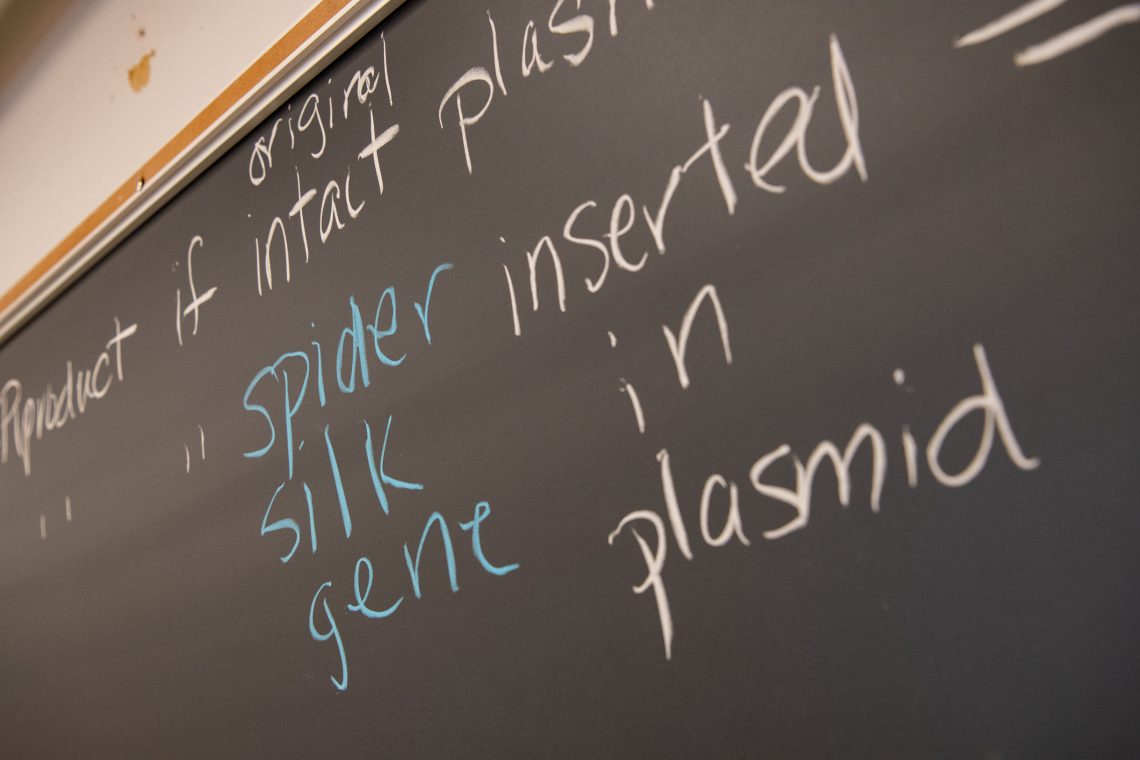 original
Product if intact plas =
" " spider inserted
silk in
gene plasmid